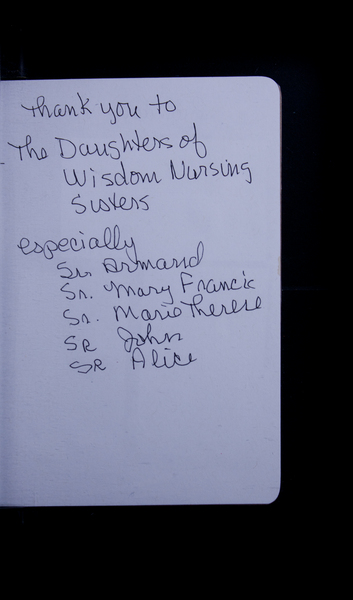 Thank you to
The Daughters of
Wisdom Nursing
Sisters
especially
Sr. Armand
Sr. Mary Francis
Sr. Marie Therese
SR John
SR Alice